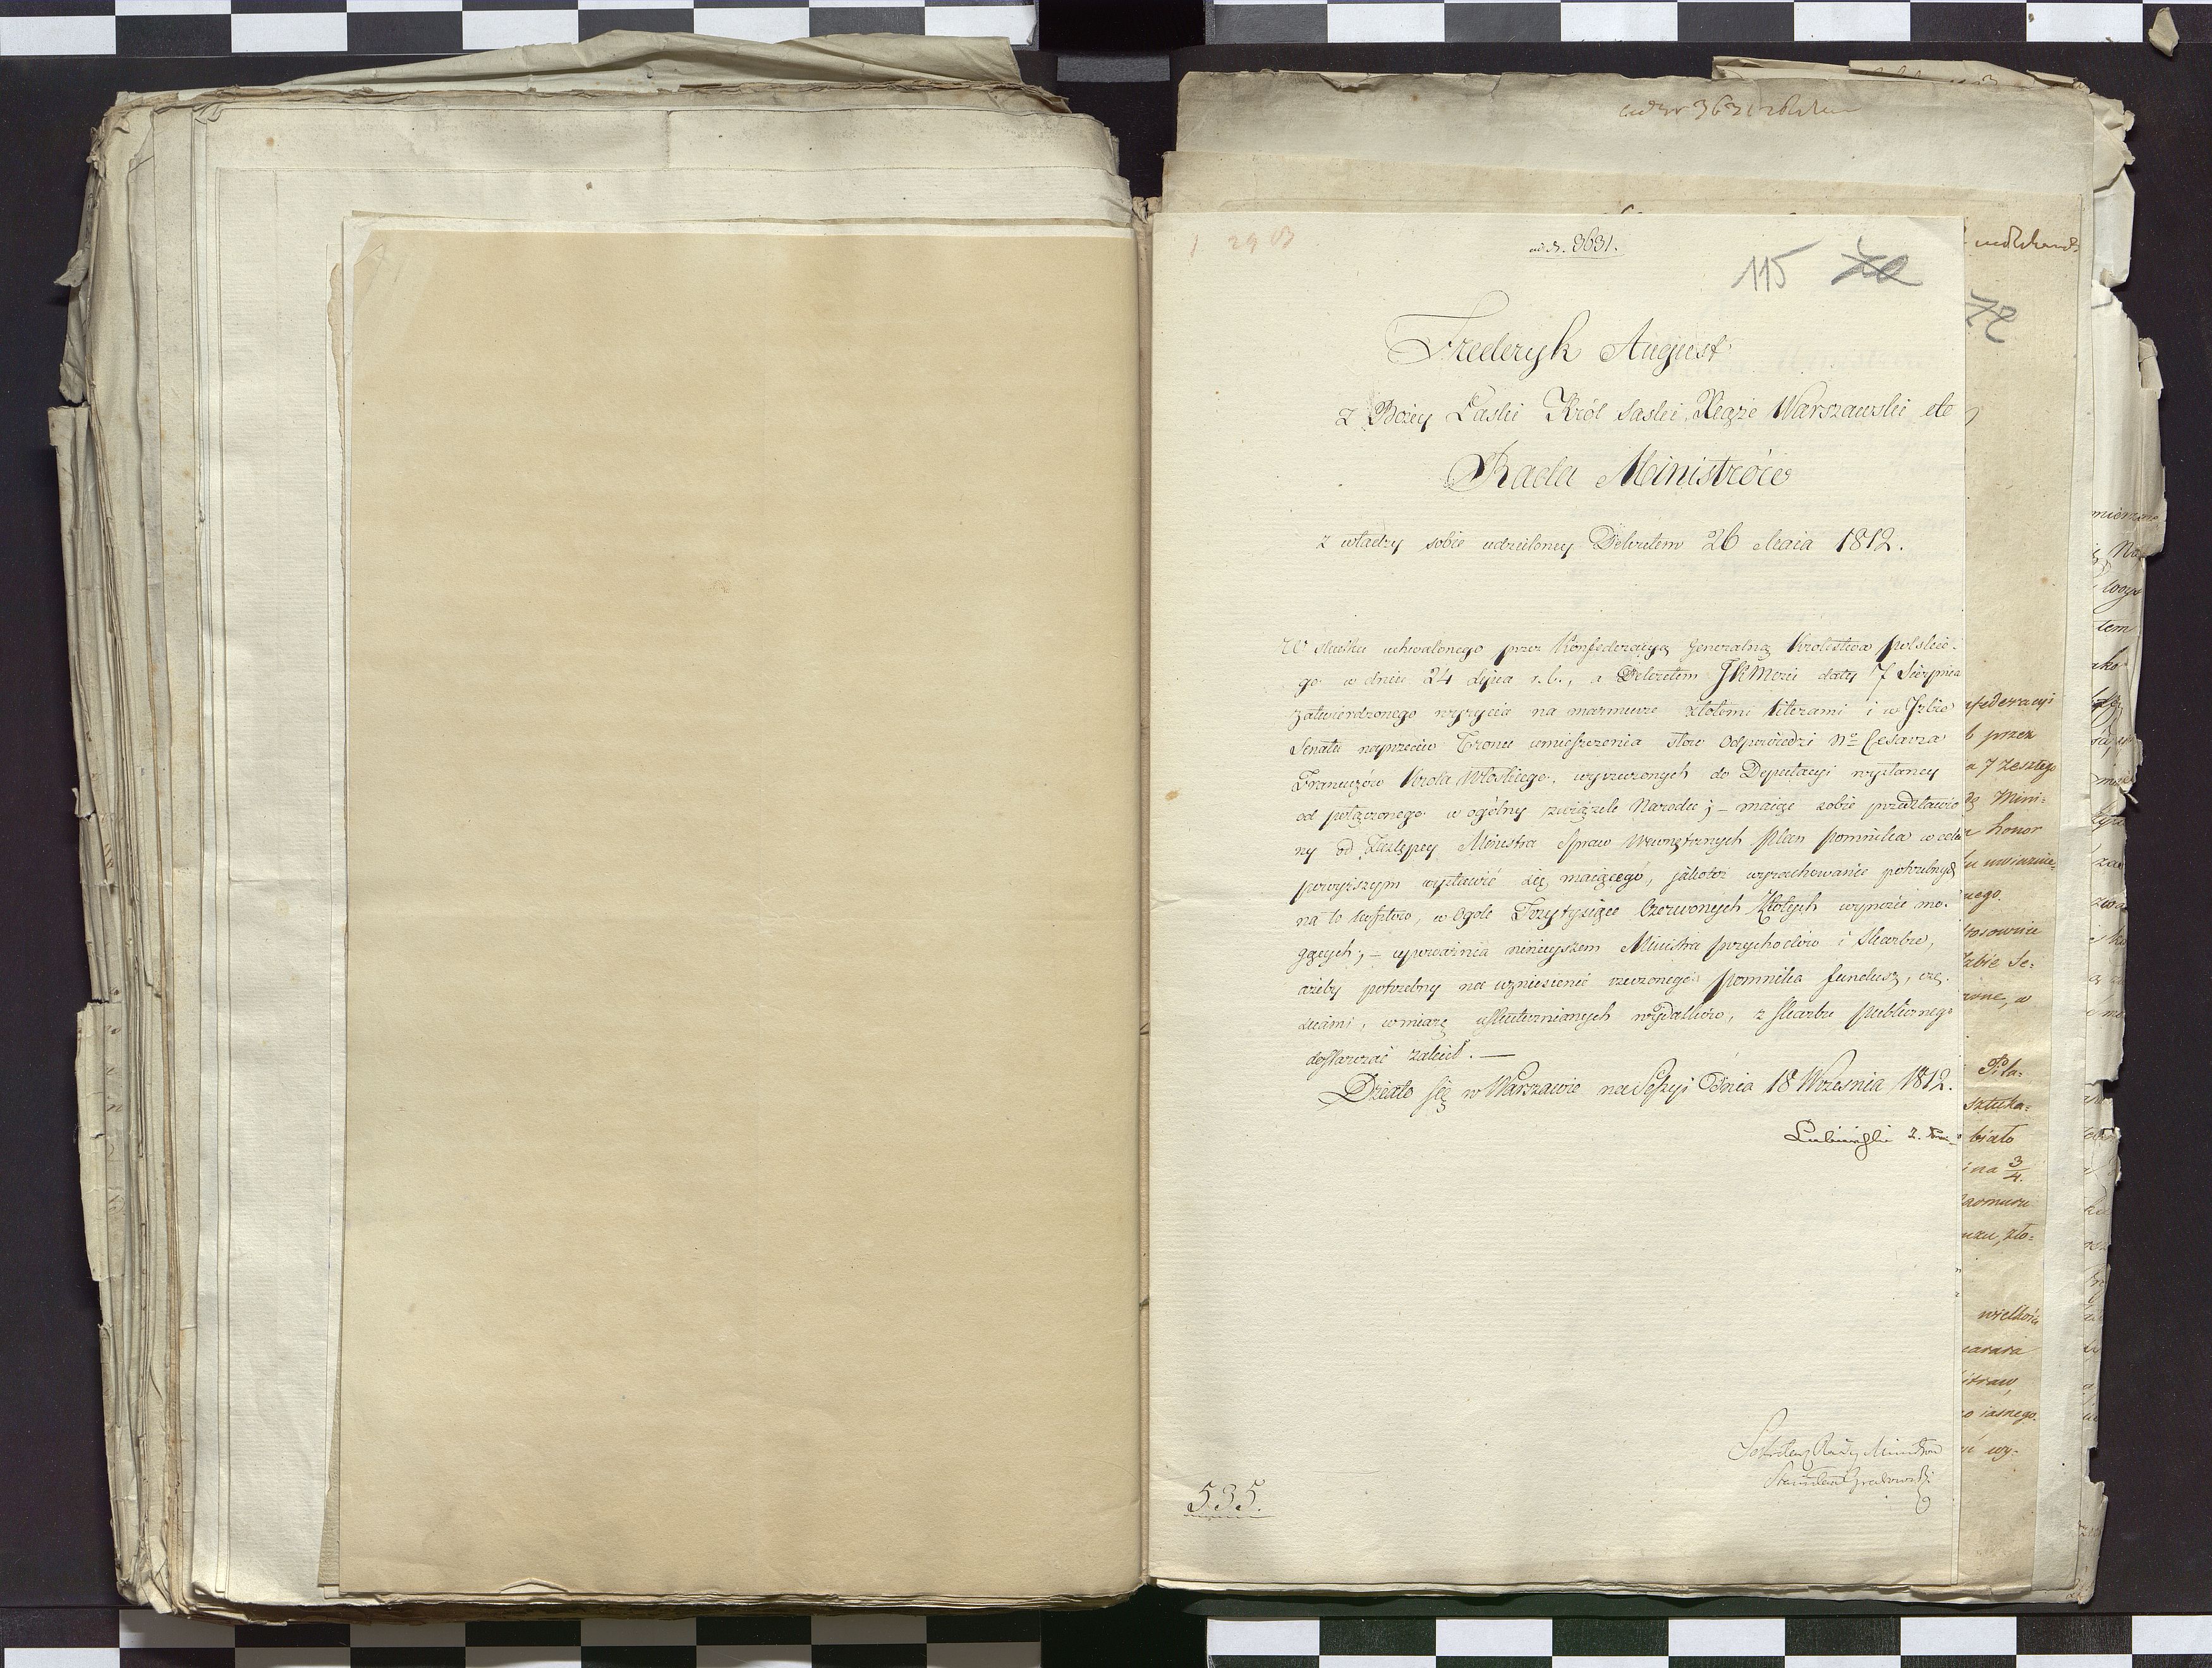 ad N. 3631.
115 72
Frederyk August
z Bożey Łaski Król Saski, Xiąże Warszawski etc
Rada Ministrów
z władzy sobie udzieloney Dekretem 26 Maia 1812.
W skutku uchwalonego przez Konfederacyą Generalną Krolestwa Polskie-
go w dniu 24 Lipca r. b., a Dekretem JKMości daty 7 Sierpnia
zatwierdzonego wyrycia na marmurze złotemi literami i w Izbie
Senatu naprzeciw Tronu umieszczenia słów Odpowiedzi Nº Cesarza
Francuzów Króla Włoskiego, wyrzeczonych do Deputacyi wysłaney
od połączonego w ogólny związek Narodu; – maiąc sobie przedstawio
ny od Zastępcy Ministra Spraw Wewnętrznych Plan Pomnika w celu
powyższym wystawić się maiącego, jakoteż wyrachowanie potrzebnych
na to kosztów, w ogole Trzy tysiące Czerwonych Złotych wynosić mo-
gących; – upoważnia ninieyszem Ministra Przychodów i Skarbu,
ażeby potrzebny na wzniesienie rzeczonego Pomnika fundusz, czę-
ściami, w miarę uskutecznianych wydatków, z Skarbu Publicznego
dostarczać zalecił. —
Działo się w Warszawie na Sessyi Dnia 18 Września 1812.
Lubieński
Sekretarz Rady Ministrów
Stanisław Grabowski
535.
72
federacyi
przez
a 7 zeszłego
Mini-
honor
nego.
stosownie
Izbie Se-
w
Pila-
sztuka-
biało
ina 3/4.
zło-
wielkości
iasnego.
wy-